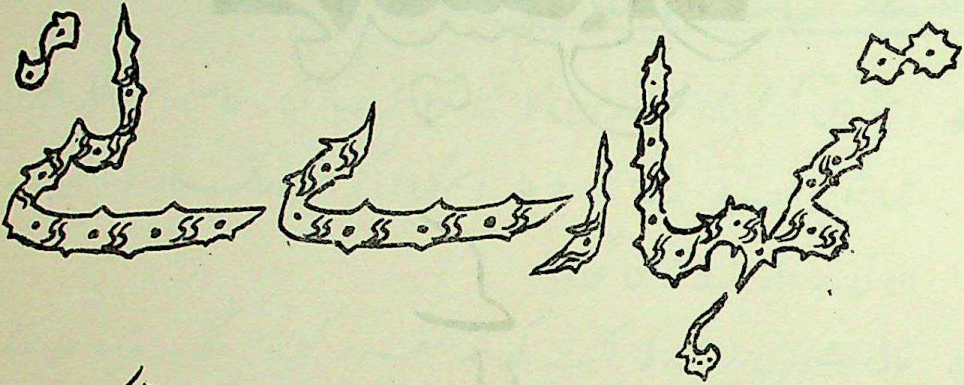 تمہارے لئے